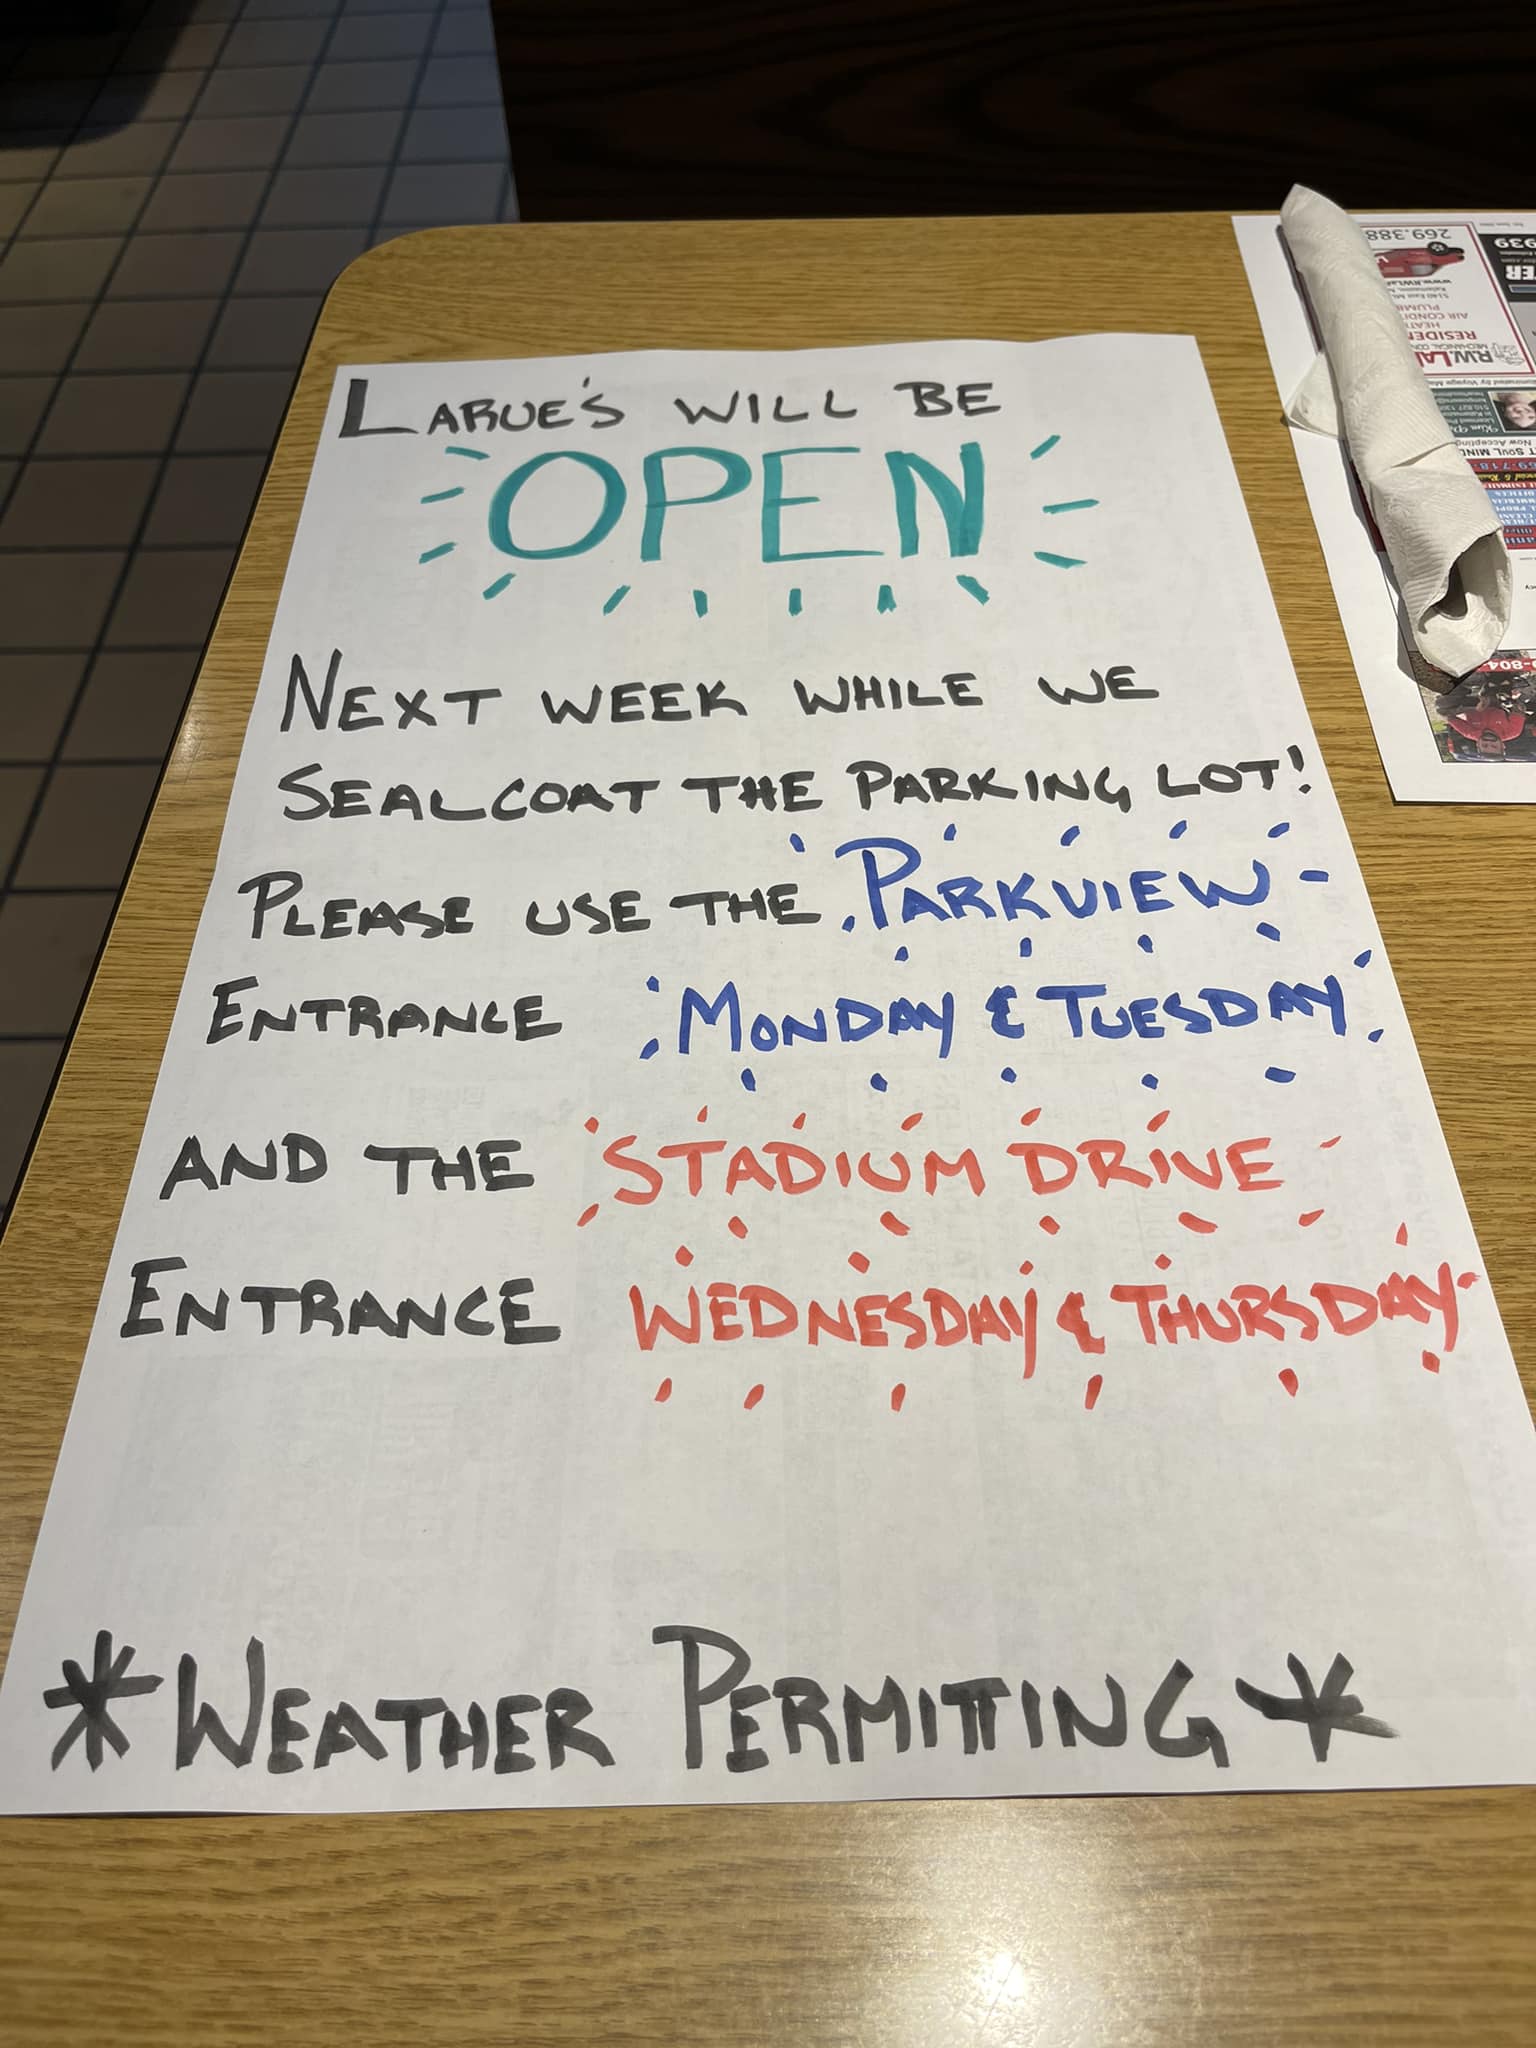 LARUE'S WILL BE
OPEN
NEXT WEEK WHILE WE
SEALCOAT THE PARKING LOT!
PLEASE USE THE PARKVIEW
ENTRANCE MONDAY & TUESDAY
AND THE STADIUM DRIVE
ENTRANCE WEDNESDAY & THURSDAY
*WEATHER PERMITTING*
269.388
939
RESIDEN
HEATI
PLUMB
AIR CONDI
R.W.LA
MECHANICAL CON
Now Accepting
T SOUL MIND